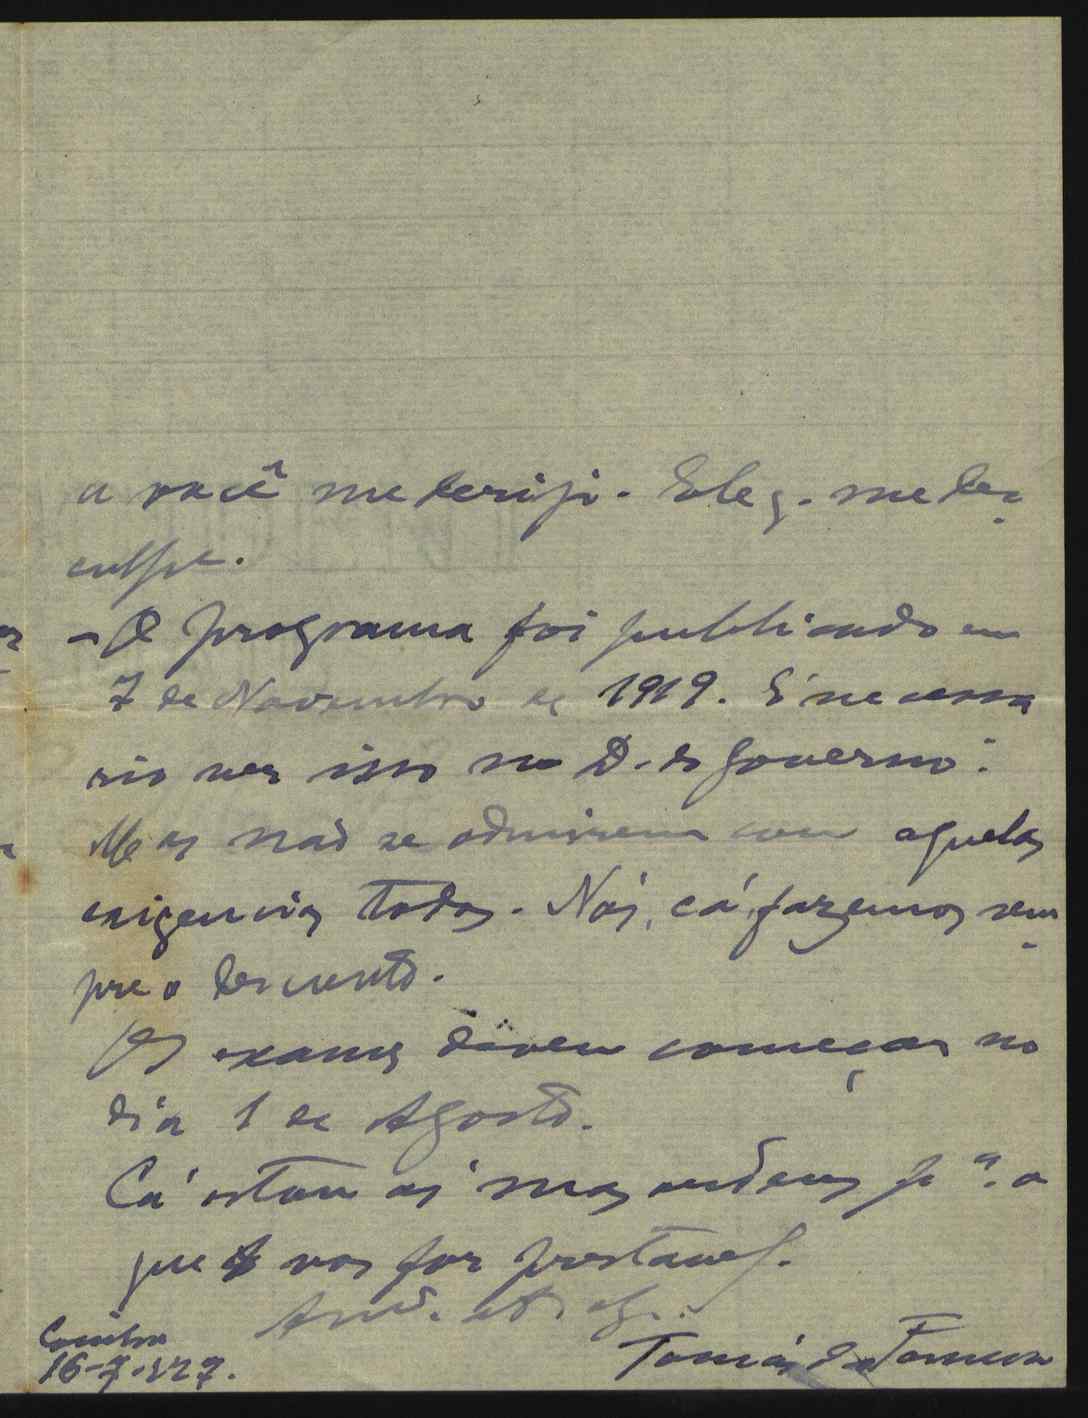 a você me dirijo. Ele q. me des-
culpe.
— O programa foi publicado em
7 de Novembro de 1919. É necessa
rio ver isso no D. do Governo.
Mas não se admirem com aquelas
exigencias todas. Nós, cá, fazemos sem-
pre o desconto.
Os exames devem começar no
dia 1 de Agosto.
Cá estou ás suas ordens pª. o
que vos for prestavel.
Amº. at.
Coimbra
16-7-927.
Tomás da Fonseca